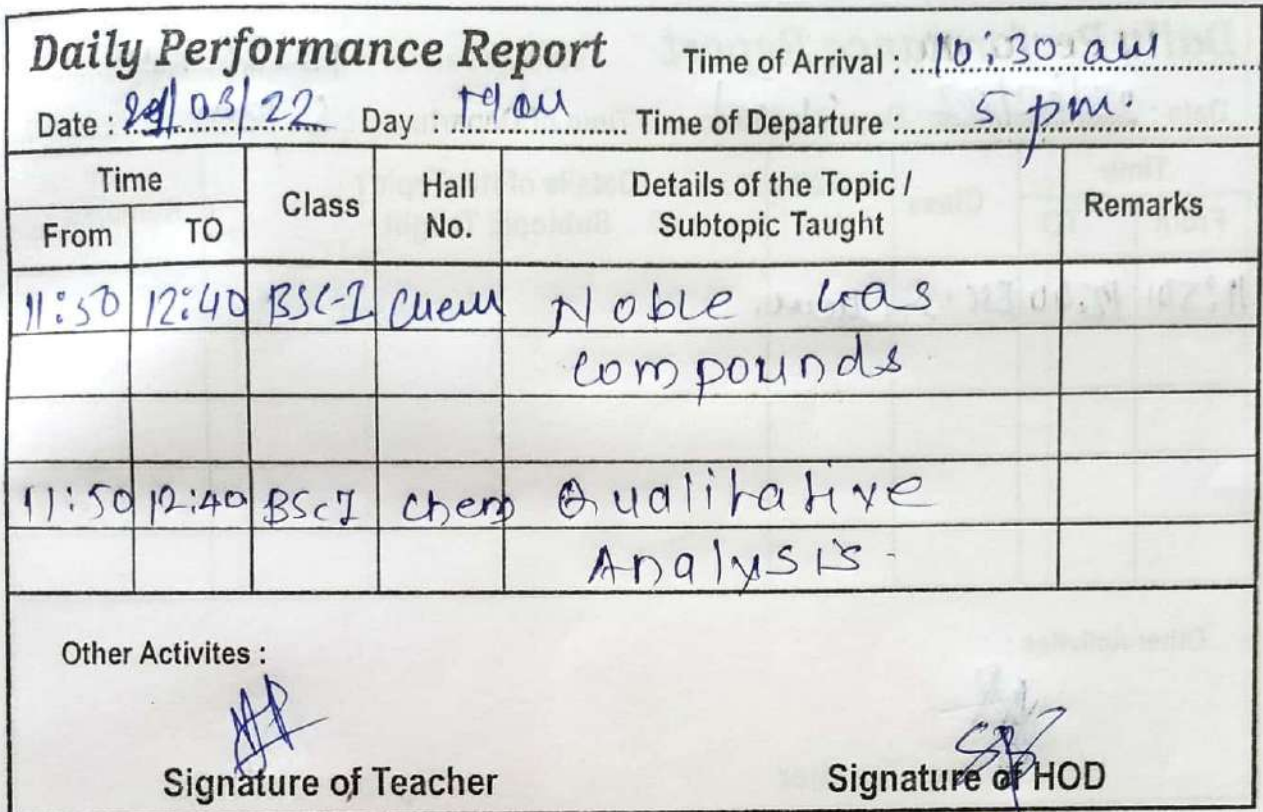 Daily Performance Report Time of Arrival : 10:30 am
Date : /03/22 Day : Mon Time of Departure : 5 pm.
Time Class Hall No. Details of the Topic / Subtopic Taught Remarks
From TO
11:50 12:40 BSC-I Chem Noble Gas
compounds
11:50 12:40 BSc I Chem Qualitative
Analysis.
Other Activites :
Signature of Teacher Signature of HOD